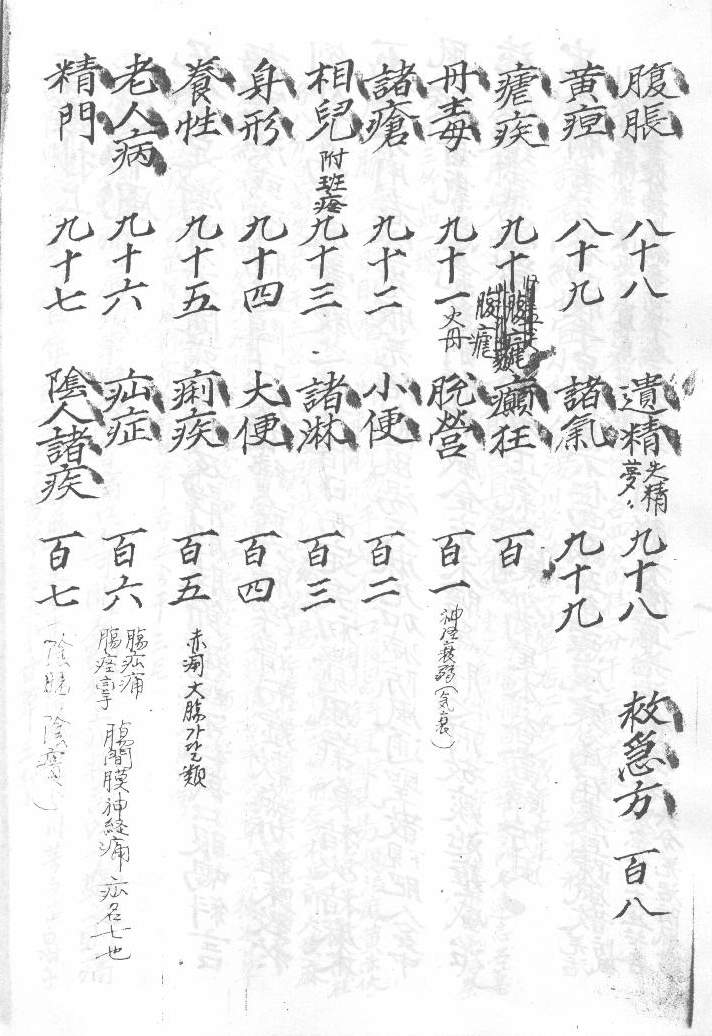 腹脹 八十八
黄疸 八十九
瘧疾 九十
丹毒 九十一 火丹
諸瘡 九十二
相兒 附班疹 九十三
身形 九十四
養性 九十五
老人病 九十六
精門 九十七
遺精 失精 夢〻 九十八
諸氣 九十九
癲狂 百
脫營 百一 神経衰弱(気衰)
小便 百二
諸淋 百三
大便 百四
痢疾 百五 赤痢 大腸가달類
疝症 百六 腸疝痛 腸痙攣 腸間膜神経痛 疝名七也
陰人諸疾 百七 陰脱
救急方 百八